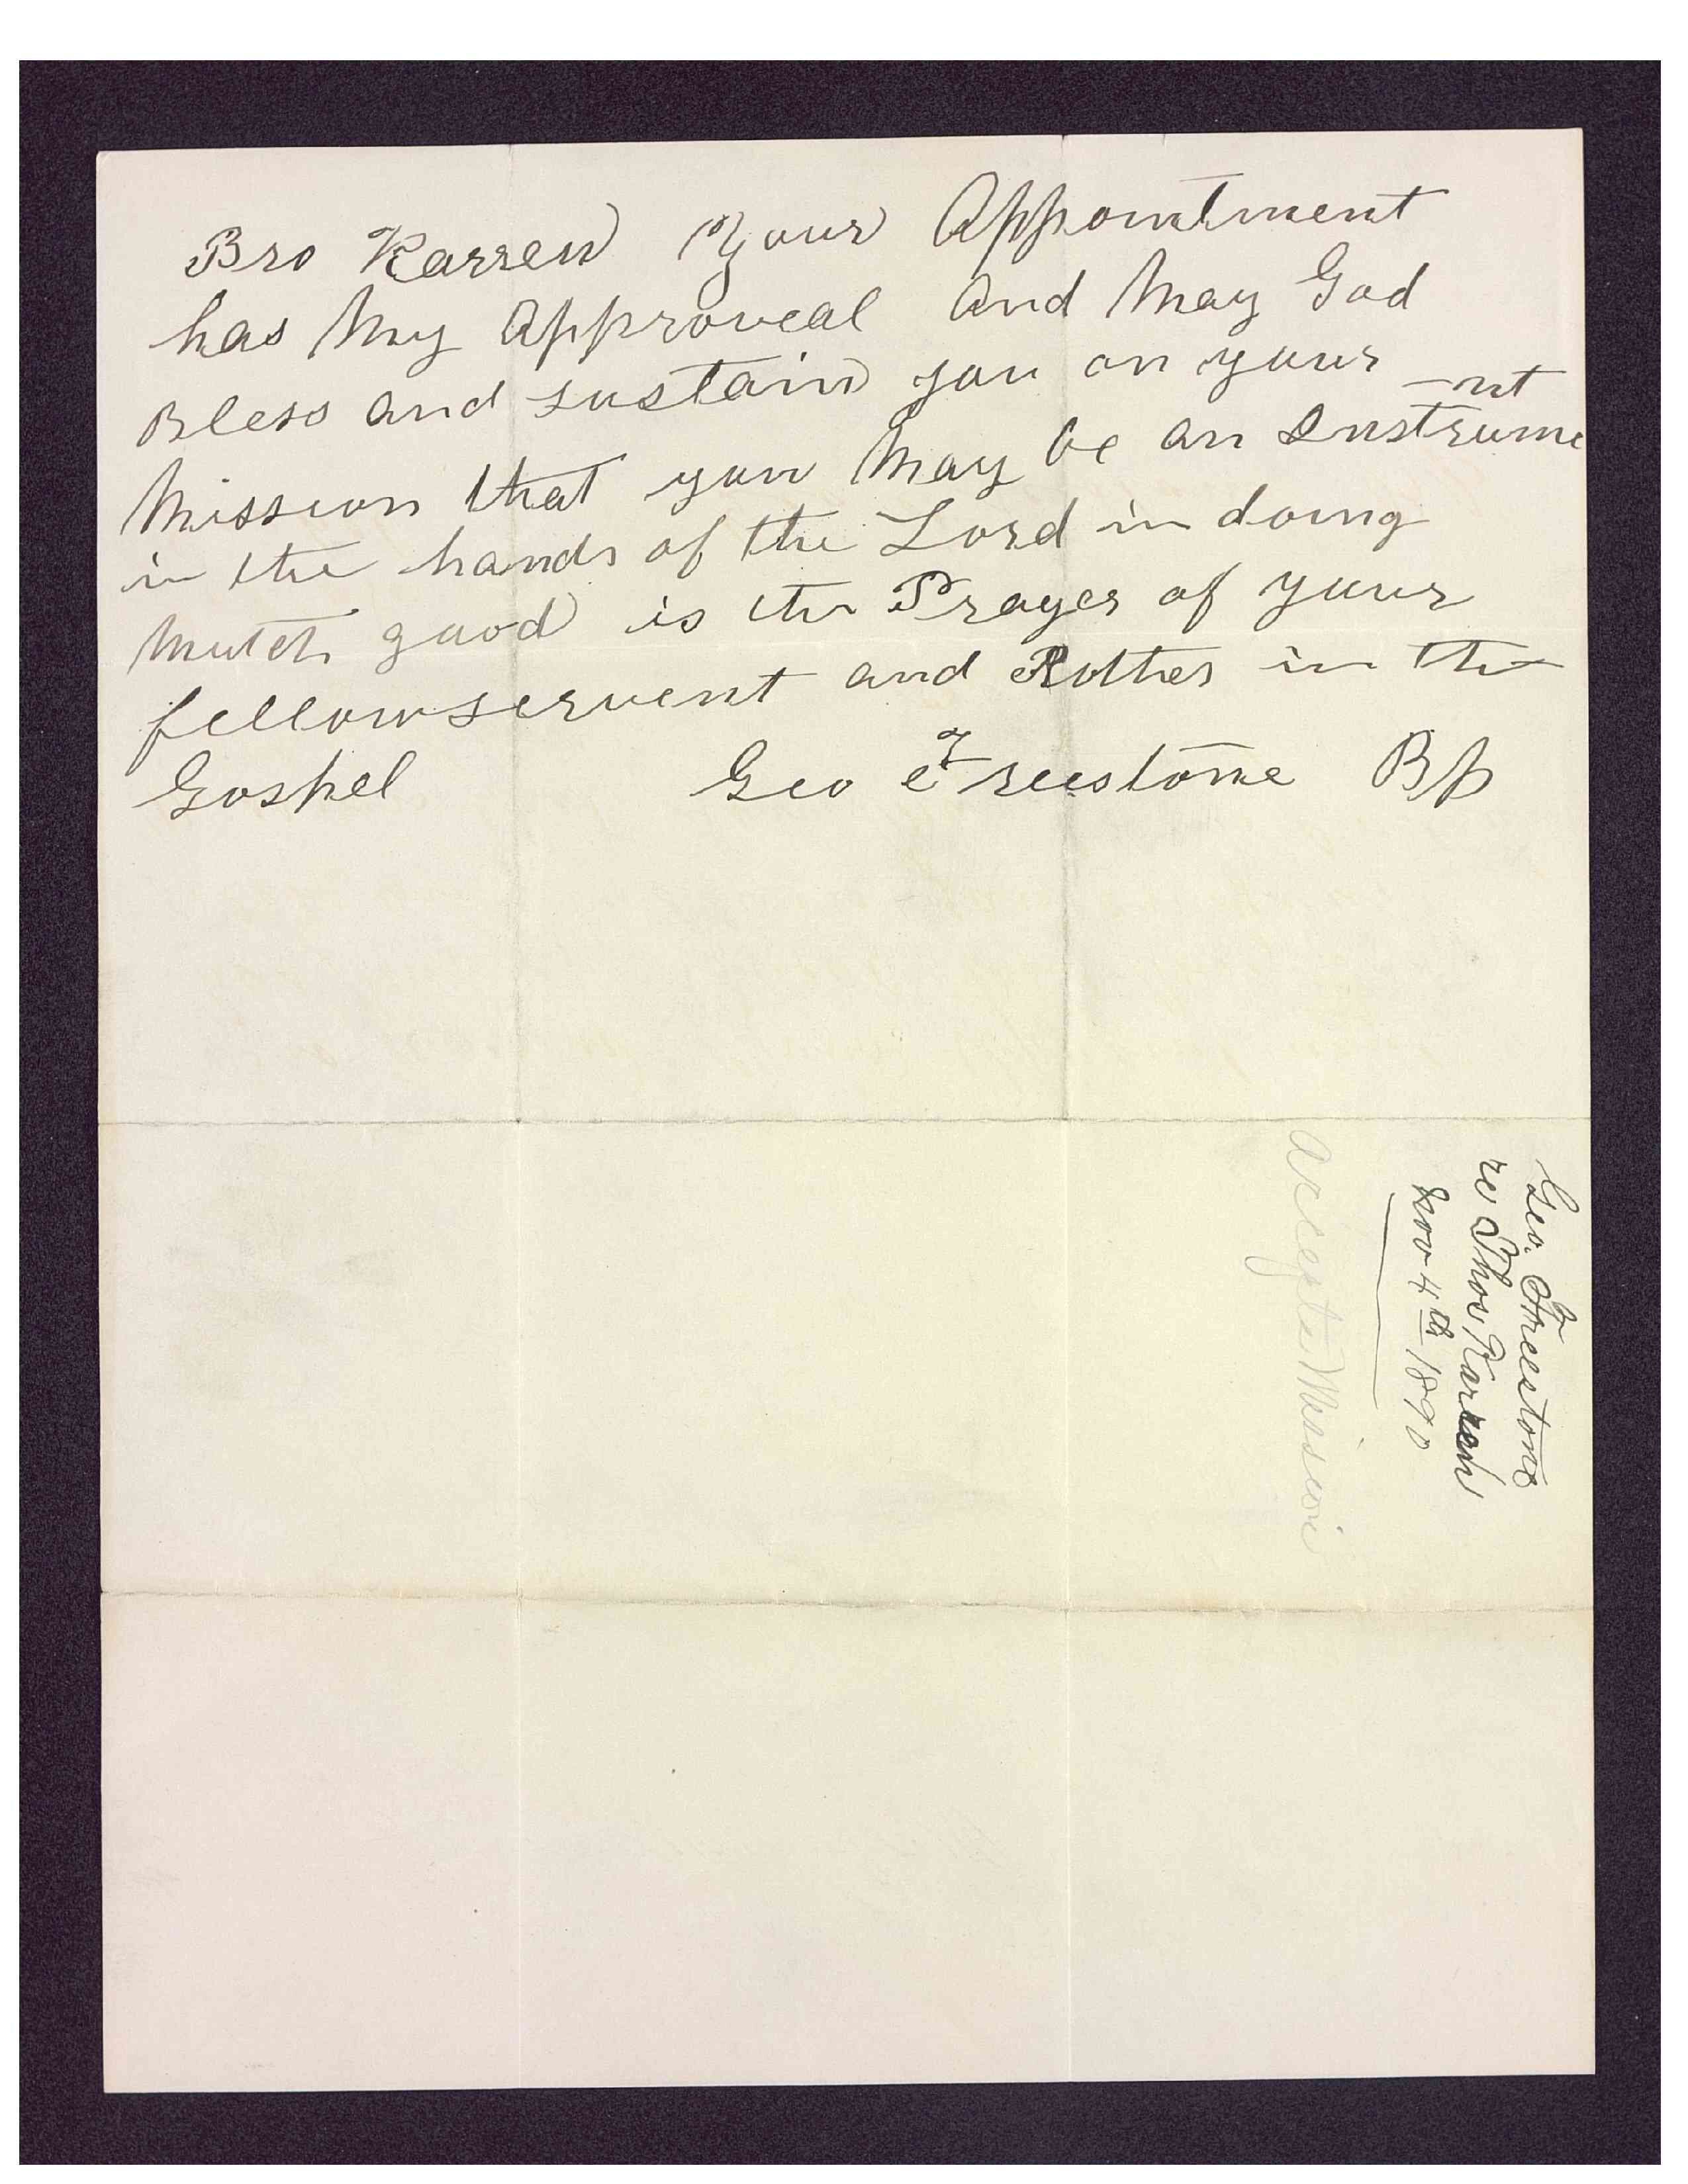 Bro Karren Your Appointment
has My Approveal And May God
Bless and sustain you on your
Mission that you May be an Instrument
in the hands of the Lord in doing
Mutch good is the Prayer of your
fellowservent and Brother in the
Gospel Geo Freestone Bp
Geo. Freestone
re Thos Karren
Nov 4th 1890
Accepts Mission